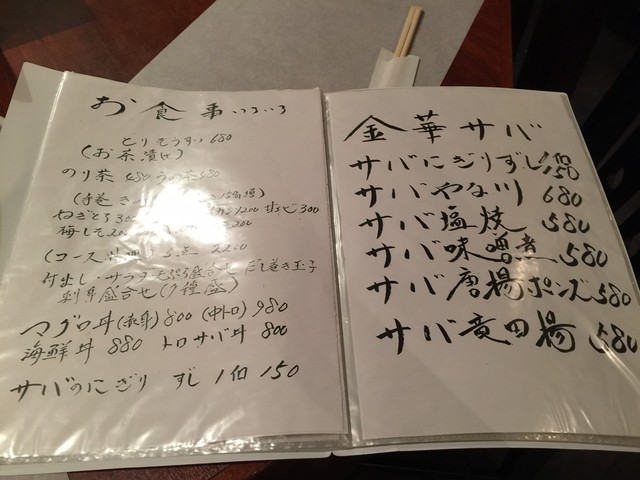 お食事いろいろ
とりぞうすい 680
(お茶漬け)
のり茶 480 うめ茶 480
(手巻き
ねぎとろ 300 200 300
梅しそ 200 200
(コース 5点
付出し・サラダ だし巻き玉子
刺身盛合せ(7種盛)
マグロ丼(赤身)800 (中トロ)980
海鮮丼 880 トロサバ丼 800
サバのにぎりずし 1個 150
金華サバ
サバにぎりずし 150
サバやな川 680
サバ塩焼 580
サバ味噌煮 580
サバ唐揚ポンズ 580
サバ竜田揚 580